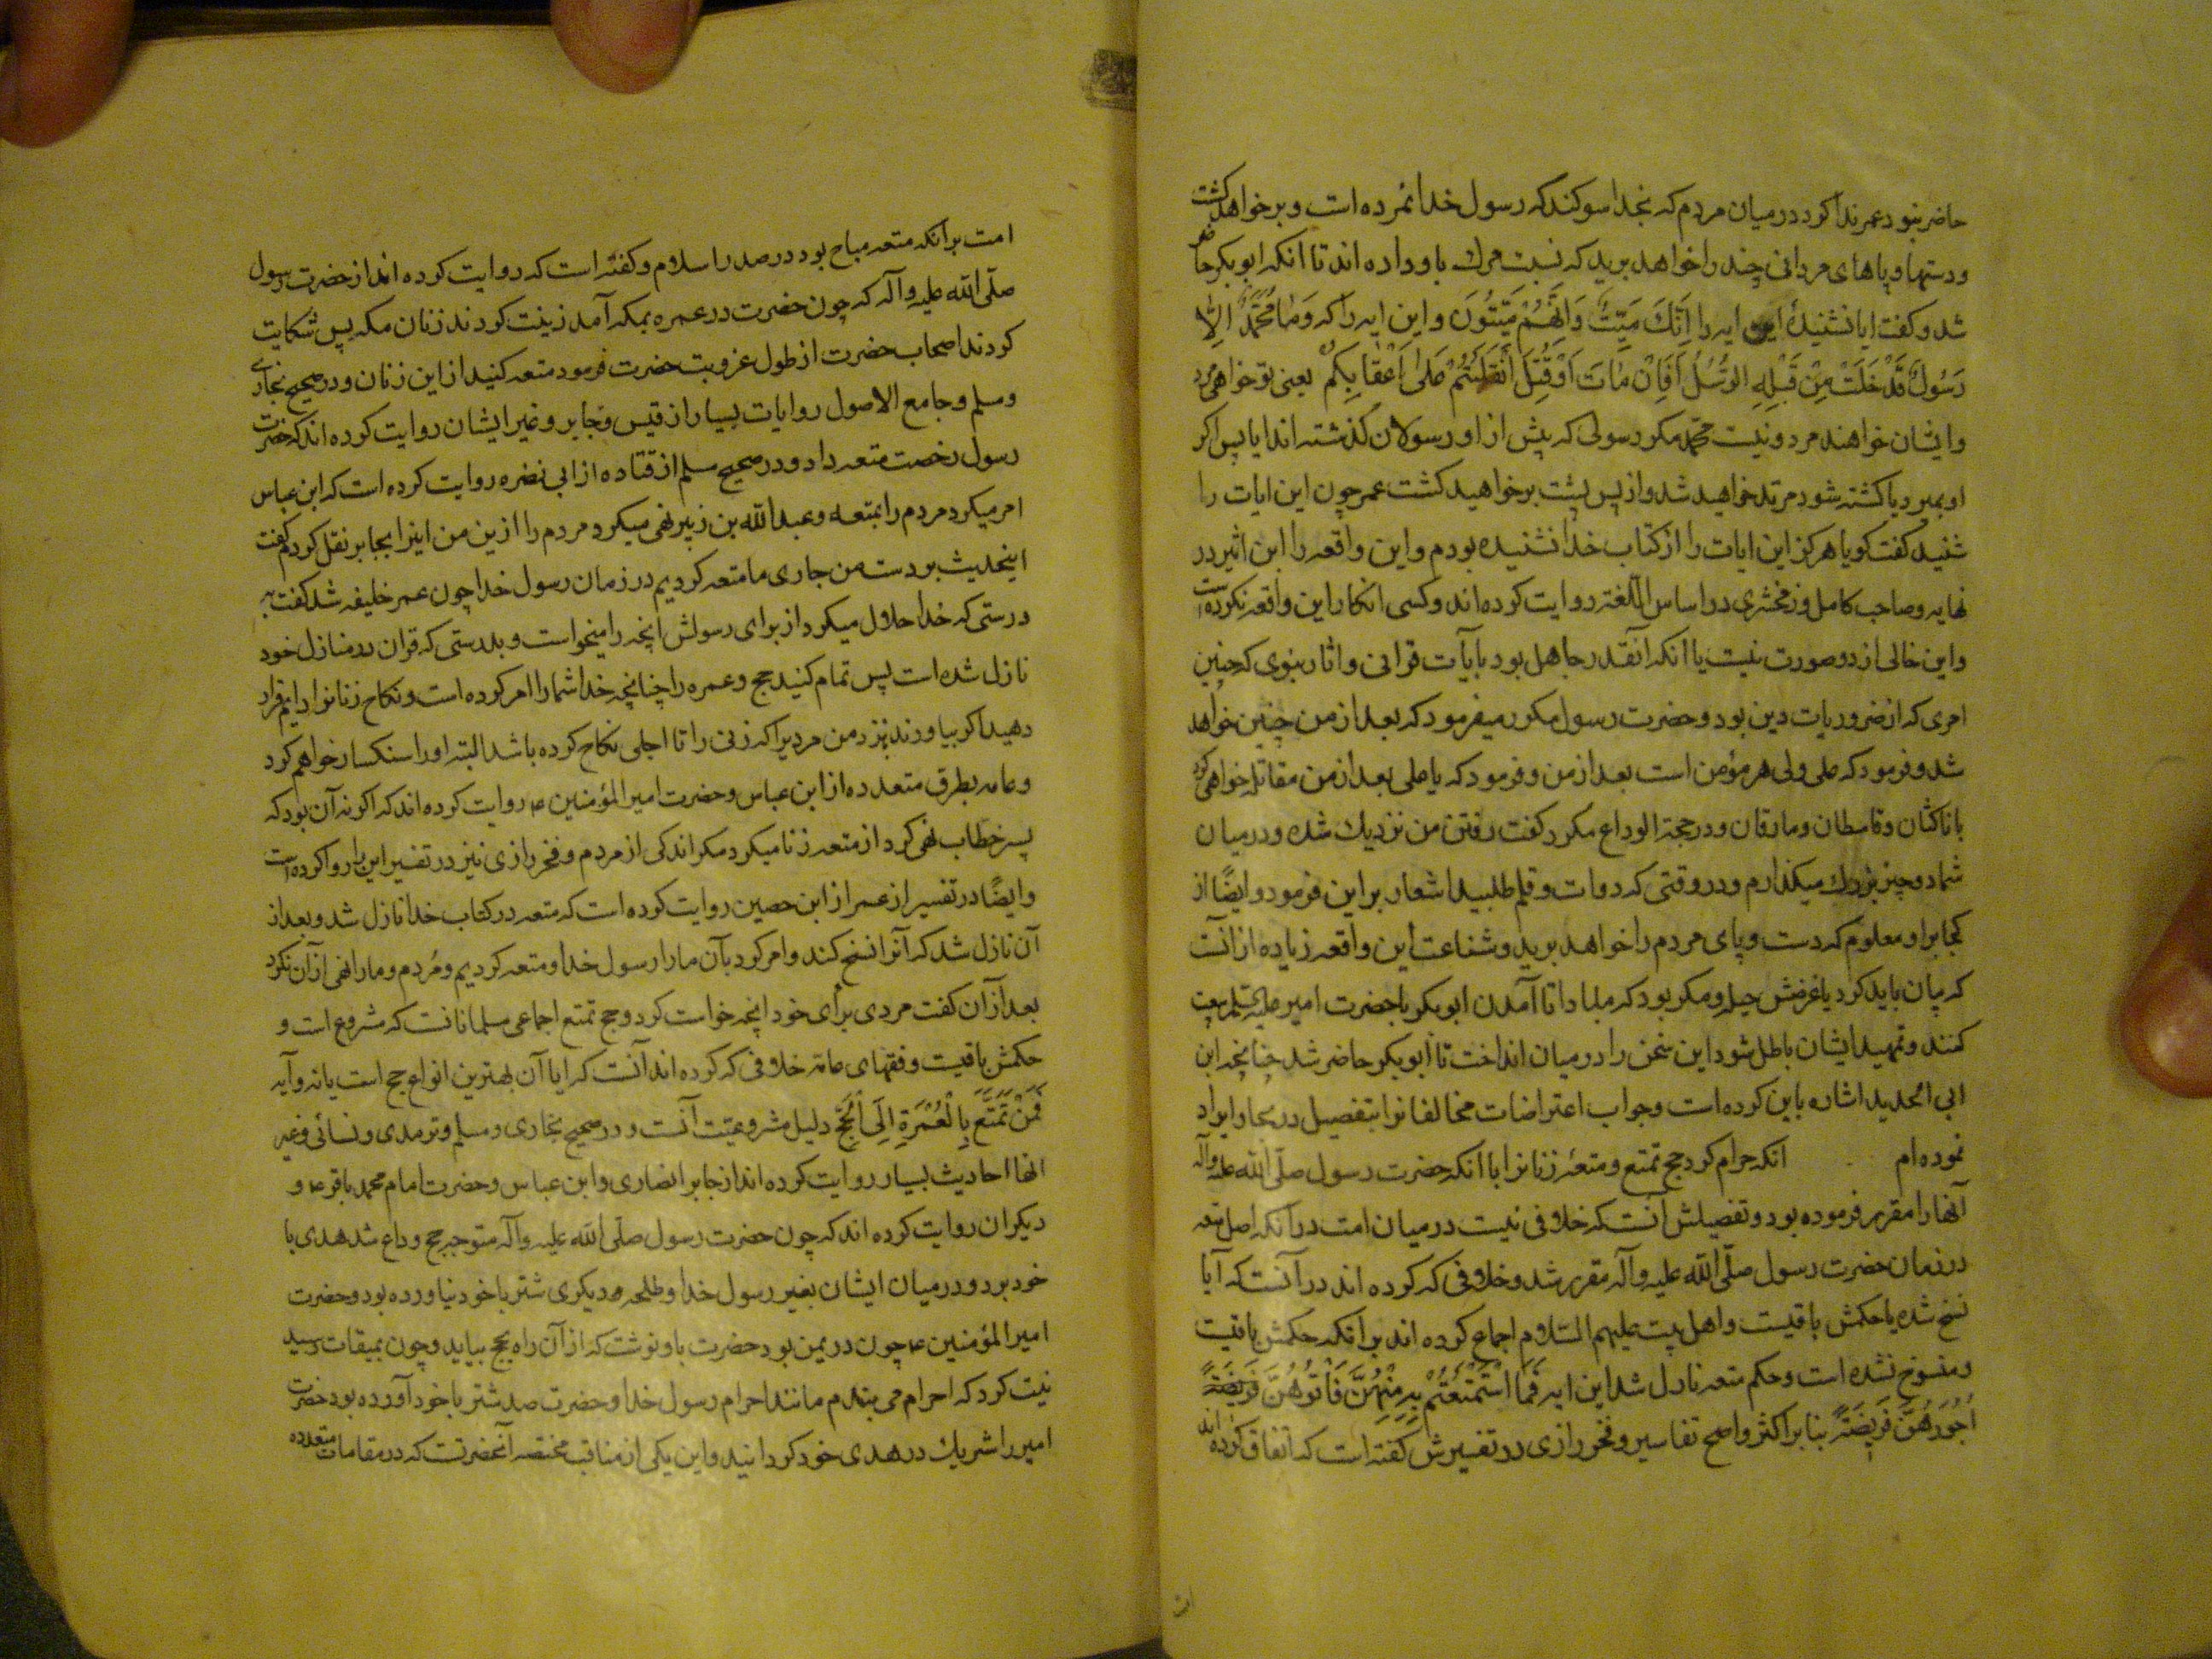 حاضر نبود عمر ندا کرد در میان مردم که بخدا سوکند که رسول خدا نمرده است و برخواهد کشت
و دستها و پاهای مردانی چند را خواهد برید که نسبت مرك باو داده اند تا انکه ابو بکر حاضر
شد و کفت ایا نشنیدۀ این ایه را اِنَّكَ مَیِّتٌ وَاِنَّهُمْ مَیِّتُونَ و این ایه را که وَمَا مُحَمَّدٌ اِلّٰا
رَسُولٌ قَدْ خَلَتْ مِنْ قَبْلِهِ الرُّسُلُ اَفَاِنْ مٰاتَ اَوْ قُتِلَ انْقَلَبْتُمْ عَلیٰ اَعْقٰابِکُمْ یعنی تو خواهی مرد
و ایشان خواهند مرد و نیست محمّد مکر رسولی که پیش از او رسولان کذشته اند ایا پس اکر
او بمیرد یا کشته شود مرتد خواهید شد و از پس پشت برخواهید کشت عمر چون این ایات را
شنید کفت کویا هرکز این ایات را از کتاب خدا نشنیده بودم و این واقعه را ابن اثیر در
نهایه و صاحب کامل و زمخشری در اساس اللّغة روایت کرده اند و کسی انکار این واقعه نکرده است
و این خالی از دو صورت نیست یا انکه آنقدر جاهل بود بآیات قرانی و اثار نبوی که چنین
امری که از ضروریات دین بود و حضرت رسول مکرر میفرمود که بعد از من چنین خواهد
شد و فرمود که علی ولی هر مؤمن است بعد از من و فرمود که یا علی بعد از من مقاتله خواهی کرد
با ناکثان و قاسطان و مارقان و در حجة الوداع مکرر کفت رفتن من نزدیك شده و در میان
شما دو چیز بزرك میکذارم و در وقتی که دوات و قلم طلبید اشعار بر این فرمود و ایضًا از
کجا بر او معلوم که دست و پای مردم را خواهد برید و شناعت این واقعه زیاده از انست
که بیان باید کرد یا غرضش حیله و مکر بود که مبادا تا آمدن ابو بکر با حضرت امیر علیه السلم بیعت
کنند و تمهید ایشان باطل شود این سخن را در میان انداخت تا ابو بکر حاضر شد چنانچه ابن
ابی الحدید اشاره باین کرده است و جواب اعتراضات مخالفانرا بتفصیل در بحار ایراد
نموده ام انکه حرام کرد حج تمتع و متعۀ زنانرا با انکه حضرت رسول صلّی اللّه علیه وآله
آنها را مقرر فرموده بود و تفصیلش آنست که خلافی نیست در میان امت در انکه اصل متعه
در زمان حضرت رسول صلّی اللّه علیه وآله مقرر شد و خلافی که کرده اند در آنست که آیا
نسخ شده یا حکمش باقیست و اهل بیت علیهم السّلام اجماع کرده اند بر انکه حکمش باقیست
و منسوخ نشده است و حکم متعه نازل شد این ایه فَمَا اسْتَمْتَعْتُمْ بِهِ مِنْهُنَّ فَاٰتُوهُنَّ فَرِیضَةً
اُجُورَهُنَّ فَرِیضَةً بنا بر اکثر و اصح تفاسیر و فخر رازی در تفسیرش کفته است که اتفاق کرده اند
امت بر انکه متعه مباح بود در صدر اسلام و کفته است که روایت کرده اند از حضرت رسول
صلّی اللّه علیه وآله که چون حضرت در عمره بمکه آمد زینت کردند زنان مکه پس شکایت
کردند اصحاب حضرت از طول عزوبت حضرت فرمود متعه کنید از این زنان و در صحیح بخاری
و مسلم و جامع الاصول روایات بسیار از قیس و جابر و غیر ایشان روایت کرده اند که حضرت
رسول رخصت متعه داد و در صحیح مسلم از قتاده از ابی نضره روایت کرده است که ابن عباس
امر میکرد مردم را بمتعه و عبد اللّه بن زبیر نهی میکرد مردم را ازین من اینرا بجابر نقل کردم کفت
اینحدیث بر دست من جاری ما متعه کردیم در زمان رسول خدا چون عمر خلیفه شد کفت
درستی که خدا حلال میکرد از برای رسولش آنچه را میخواست و بدرستی که قران در منازل خود
نازل شده است پس تمام کنید حج و عمره را چنانچه خدا شما را امر کرده است و نکاح زنانرا دایم قرار
دهید اکر بیاورند نزد من مردیرا که زنی را تا اجلی نکاح کرده باشد البته او را سنکسار خواهم کرد
و عامه بطرق متعدده از ابن عباس و حضرت امیر المؤمنین ع روایت کرده اند که اکر نه آن بود که
پسر خطاب نهی کرد از متعه زنا نمیکرد مکر اندکی از مردم و فخر رازی نیز در تفسیر این را روا کرده است
و ایضًا در تفسیر از عمران ابن حصین روایت کرده است که متعه در کتاب خدا نازل شد و بعد از
آن نازل نشد که آنرا نسخ کند و امر کرد بآن ما را رسول خدا و متعه کردیم و مُردم و ما را نهی از آن نکرد
بعد از آن کفت مردی برأی خود انچه خواست کرد و حج تمتع اجماعی مسلمانانست که مشروع است و
حکمش باقیست و فقهای عامّه خلافی که کرده اند آنست که ایا آن بهترین انواع حج است یا نه و آیه
فَمَنْ تَمَتَّعَ بِالْعُمْرَةِ اِلَی الْحَجِّ دلیل مشروعیّت آنست و در صحیح بخاری و مسلم و ترمدی و نسائی و غیر
انها احادیث بسیار روایت کرده اند از جابر انصاری و ابن عباس و حضرت امام محمد باقر ع و
دیکران روایت کرده اند که چون حضرت رسول صلّی اللّه علیه وآله متوجه حج وداع شد هدی با
خود برد و در میان ایشان بغیر رسول خدا و طلحه دیکری شتر با خود نیاورده بود و حضرت
امیر المؤمنین ع چون در یمن بود حضرت باو نوشت که از آن راه بحج بیاید و چون بمیقات رسید
نیت کرد که احرام می بندم مانند احرام رسول خدا و حضرت صد شتر با خود آورده بود حضرت
امیر را شریك در هدی خود کردانید و این یکی از مناقب مختصه آنحضرتست که در مقامات متعدده